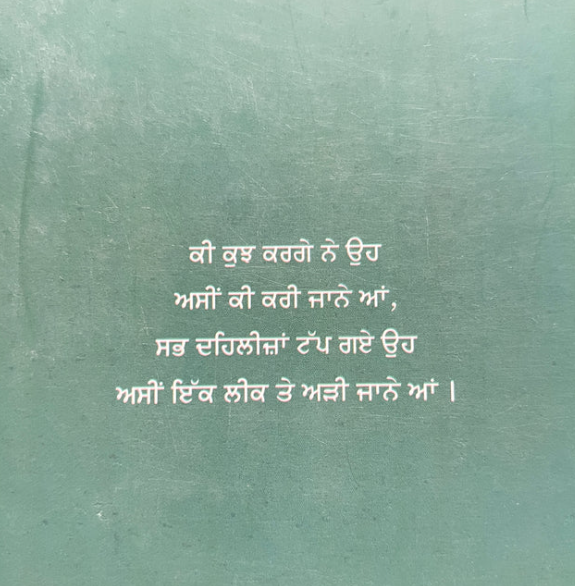 ਕੀ ਕੁਝ ਕਰਗੇ ਨੇ ਉਹ
ਅਸੀਂ ਕੀ ਕਰੀ ਜਾਨੇ ਆਂ,
ਸਭ ਦਹਿਲੀਜ਼ਾਂ ਟੱਪ ਗਏ ਉਹ
ਅਸੀਂ ਇੱਕ ਲੀਕ ਤੇ ਅੜੀ ਜਾਨੇ ਆਂ ।